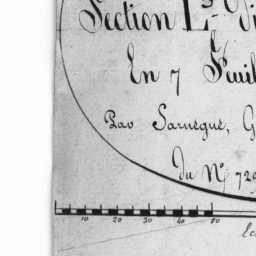 Section L
En 7 Feuil
Par Sarnegue, G
Du N° 729
10 20 30 40 50